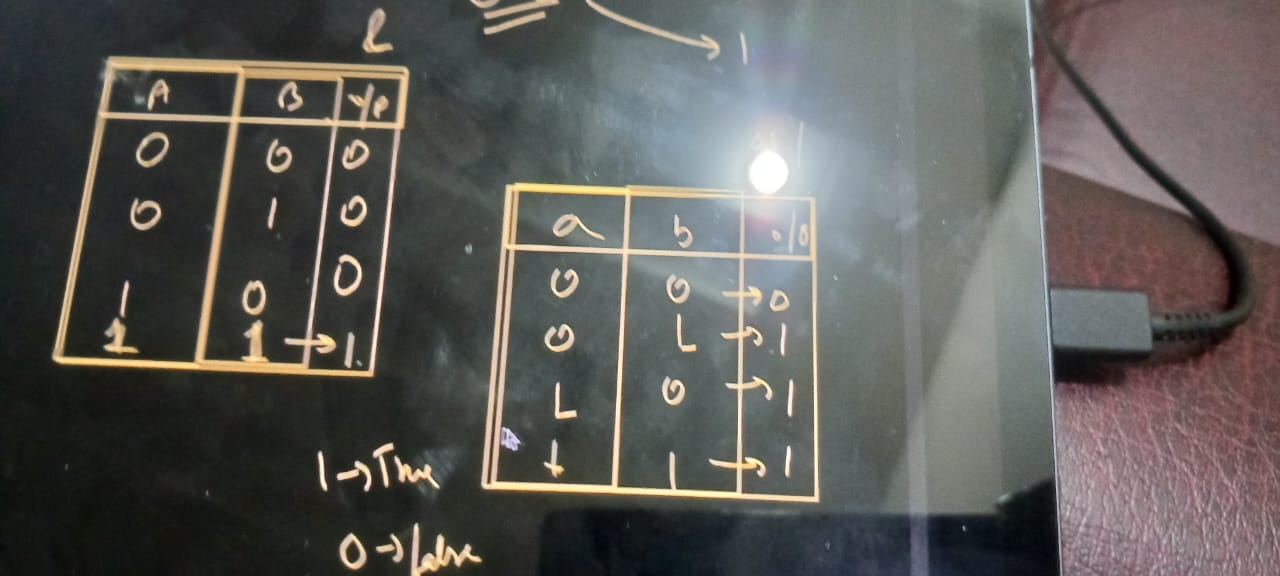 1
A B Y/P
0 0 0
0 1 0
1 0 0
1 1 → 1
a b o/0
0 0 → 0
0 1 → 1
1 0 → 1
1 1 → 1
1 → True
0 → false